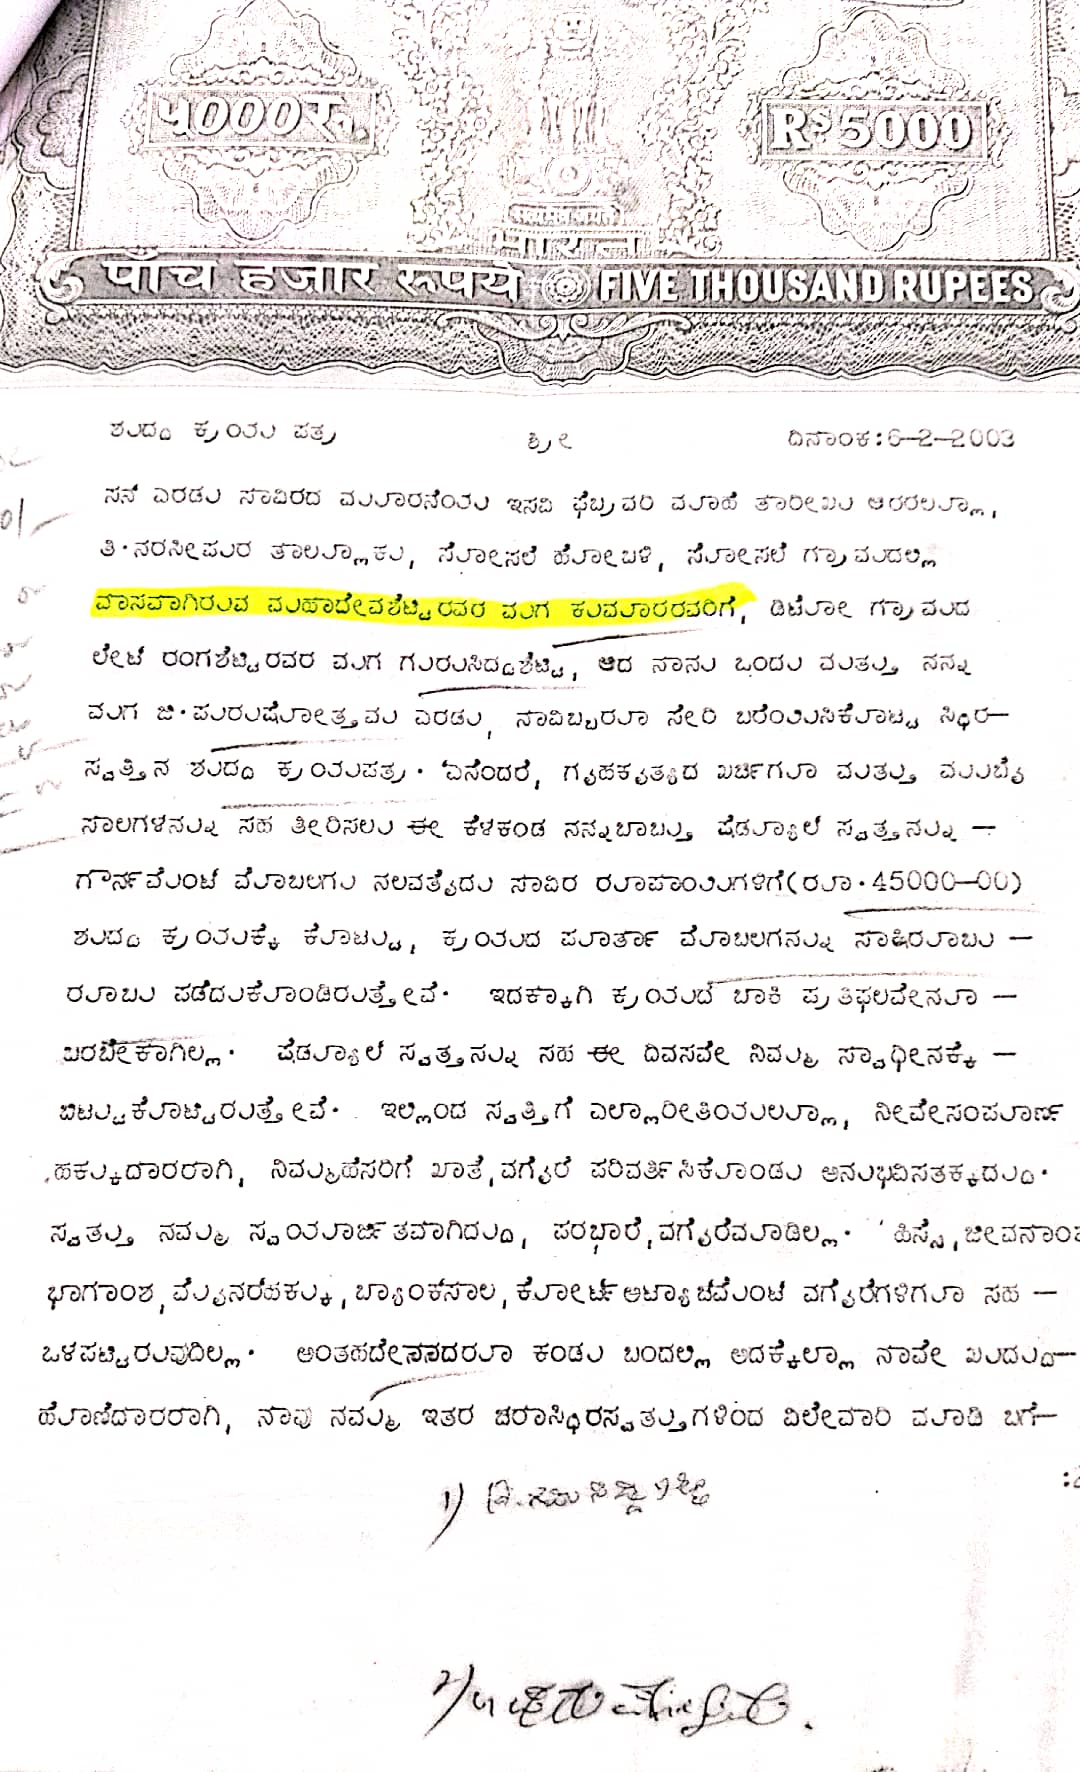 ५000रु.
Rs 5000
सत्यमेव जयते
भारत
पाँच हजार रूपये FIVE THOUSAND RUPEES
ಶುದ್ಧ ಕ್ರಯ ಪತ್ರ ಶ್ರೀ ದಿನಾಂಕ:6-2-2003
ಸನ್ ಎರಡು ಸಾವಿರದ ಮೂರನೆಯ ಇಸವಿ ಫೆಬ್ರವರಿ ಮಾಹೆ ತಾರೀಖು ಆರರಲ್ಲೂ,
ತಿ.ನರಸೀಪುರ ತಾಲ್ಲೂಕು, ಸೋಸಲೆ ಹೋಬಳಿ, ಸೋಸಲೆ ಗ್ರಾಮದಲ್ಲಿ
ವಾಸವಾಗಿರುವ ಮಹಾದೇವಶೆಟ್ಟಿರವರ ಮಗ ಕುಮಾರರವರಿಗೆ, ಡಿಟೋ ಗ್ರಾಮದ
ಲೇಟ್ ರಂಗಶೆಟ್ಟಿರವರ ಮಗ ಗುರುಸಿದ್ದಶೆಟ್ಟಿ, ಆದ ನಾನು ಒಂದು ಮತ್ತು ನನ್ನ
ಮಗ ಜಿ.ಪುರುಷೋತ್ತಮ ಎರಡು, ನಾವಿಬ್ಬರೂ ಸೇರಿ ಬರೆಯಿಸಿಕೊಟ್ಟ ಸ್ಥಿರ-
ಸ್ವತ್ತಿನ ಶುದ್ಧ ಕ್ರಯಪತ್ರ. ಏನೆಂದರೆ, ಗೃಹಕೃತ್ಯದ ಖರ್ಚಿಗೂ ಮತ್ತು ಮುಂಬೈ
ಸಾಲಗಳನ್ನು ಸಹ ತೀರಿಸಲು ಈ ಕೆಳಕಂಡ ನನ್ನಬಾಬ್ತು ಷೆಡ್ಯೂಲ್ ಸ್ವತ್ತನ್ನು -
ಗೌರ್ನಮೆಂಟ್ ಮೊಬಲಗು ನಲವತ್ತೈದು ಸಾವಿರ ರೂಪಾಯಿಗಳಿಗೆ(ರೂ.45000-00)
ಶುದ್ಧ ಕ್ರಯಕ್ಕೆ ಕೊಟ್ಟು, ಕ್ರಯದ ಪೂರ್ತಾ ಮೊಬಲಗನ್ನು ಸಾಕ್ಷಿರೂಬು -
ರೂಬು ಪಡೆದುಕೊಂಡಿರುತ್ತೇವೆ. ಇದಕ್ಕಾಗಿ ಕ್ರಯದ ಬಾಕಿ ಪ್ರತಿಫಲವೇನೂ -
ಬರಬೇಕಾಗಿಲ್ಲ. ಷೆಡ್ಯೂಲ್ ಸ್ವತ್ತನ್ನು ಸಹ ಈ ದಿವಸವೇ ನಿಮ್ಮ ಸ್ವಾಧೀನಕ್ಕೆ -
ಬಿಟ್ಟುಕೊಟ್ಟಿರುತ್ತೇವೆ. ಇಲ್ಲಿಂದ ಸ್ವತ್ತಿಗೆ ಎಲ್ಲಾರೀತಿಯಲ್ಲೂ, ನೀವೇಸಂಪೂರ್ಣ
ಹಕ್ಕುದಾರರಾಗಿ, ನಿಮ್ಮಹೆಸರಿಗೆ ಖಾತೆ,ವಗೈರೆ ಪರಿವರ್ತಿಸಿಕೊಂಡು ಅನುಭವಿಸತಕ್ಕದ್ದು.
ಸ್ವತ್ತು ನಮ್ಮ ಸ್ವಯಾರ್ಜಿತವಾಗಿದ್ದು, ಪರಭಾರೆ,ವಗೈರೆಮಾಡಿಲ್ಲ. ಹಿಸ್ಸೆ,ಜೀವನಾಂ
ಭಾಗಾಂಶ,ಮೈನರ್‌ಹಕ್ಕು,ಬ್ಯಾಂಕ್‌ಸಾಲ,ಕೋರ್ಟ್ ಅಟ್ಯಾಚ್‌ಮೆಂಟ್ ವಗೈರೆಗಳಿಗೂ ಸಹ -
ಒಳಪಟ್ಟಿರುವುದಿಲ್ಲ. ಅಂತಹದೇನಾದರೂ ಕಂಡು ಬಂದಲ್ಲಿ ಅದಕ್ಕೆಲ್ಲಾ ನಾವೇ ಖುದ್ದು-
ಹೊಣೆದಾರರಾಗಿ, ನಾವು ನಮ್ಮ ಇತರ ಚರಾಸ್ಥಿರಸ್ವತ್ತುಗಳಿಂದ ವಿಲೇವಾರಿ ಮಾಡಿ ಬಗೆ-
1)
2)